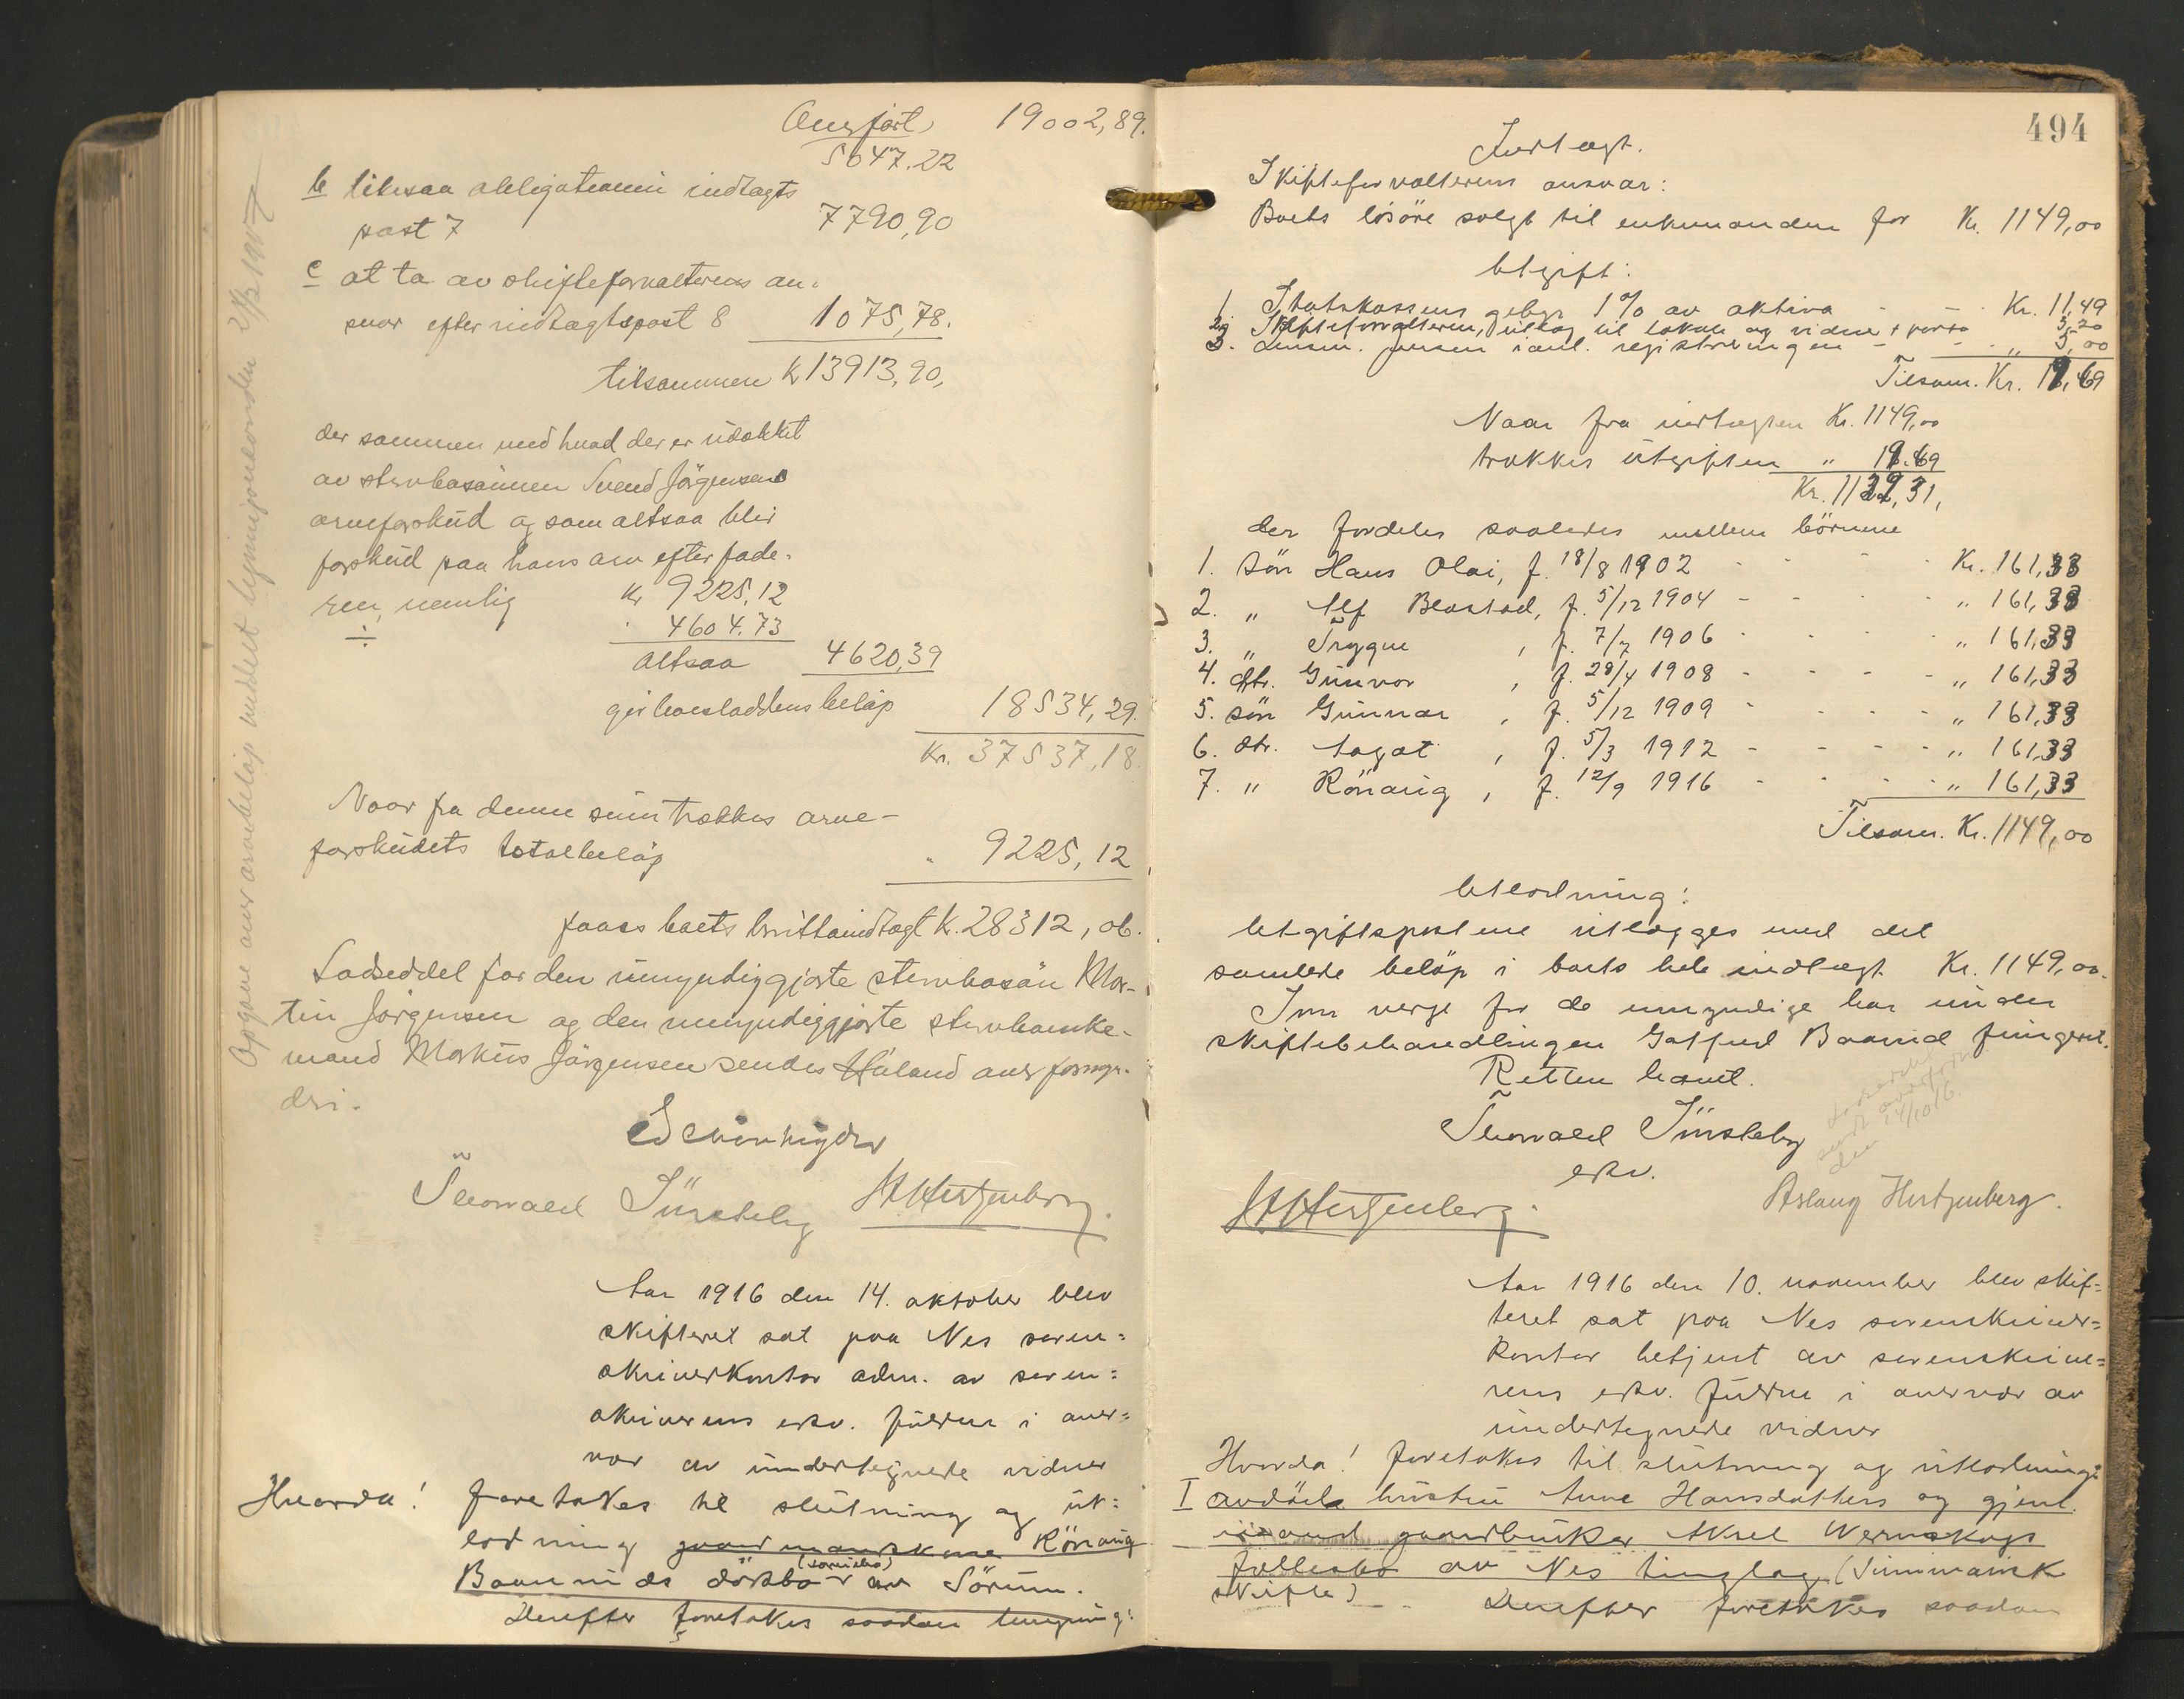 Overført 19002,89.
5047.22
b likesaa obligationen indtagts
post 7 7790,90
c at ta av skifteforvalterens an-
svar efter indtagtspost 8 1075,78.
tilsammen kr 13913,90,
der sammen med hvad der er udækket
av stervbosønnen Svend Jörgensens
arveforskud og som altsaa blir
forskud paa hans arv efter fade-
ren, nemlig kr 9225,12
÷ 4604.73
altsaa 4620,39
gir boesloddens beløp 18534,29.
Kr. 37537,18.
Naar fra denne sum trækkes arve-
forskudets totalbeløp " 9225,12
faaes boets bruttoindtægt k. 28312,06.
Lodseddel for den umyndiggjorte stervbosøn Mar-
tin Jørgensen og den umyndiggjorte stervboenke-
mand Markus Jørgensen sendes Høland overformyn-
deri.
Thorvald Sünsteby HHertzenberg.
Opgave over arvebeløp meddelt ligningsnevnden
Aar 1916 den 14. oktober blev
skifteret sat paa Nes soren=
skriverkontor adm. av soren=
skriverens eskv. fuldm i over=
vær av undertegnede vidner
Hvorda! foretokes til slutning og ut=
lodning gaardmandskone Rönaug
Baannids dödsbo (særeiebo) av Sörum.
Derefter foretokes saadan
494
Indtægt.
Skifteforvalterens ansvar:
Boets lösöre solgt til enkemanden for Kr. 1149,00
Utgift:
1. Statskassens gebyr 1% av aktiva - - Kr. 11,49
2. Skifteforvalteren, utlæg til lokale og vidner + porto 3,20
3. Lensm. Jensen i anl. registreringen - - - " 5,00
Tilsam. Kr. 19,69
Naar fra indtægten Kr. 1149,00
trækkes utgiften " 19.69
Kr. 1129,31,
der fordeles saaledes mellem börnene
1. Sön Hans Olai, f. 18/8 1902 - - - Kr. 161,33
2. " Alf Blaastad, f. 5/12 1904 - - - " 161,33
3. " Trygve , f. 7/7 1906 - - - " 161,33
4. dtr. Gunvor , f. 28/4 1908 - - - " 161,33
5. sön Gunnar , f. 5/12 1909 - - - " 161,33
6. dtr. Aagot , f. 5/3 1912 - - - " 161,33
7. " Rönaug , f. 12/9 1916 - - - " 161,33
Tilsam. Kr. 1149,00
Utlodning:
Utgiftspostene utlægges med det
samlede beløp i boets hele indtægt Kr. 1149,00.
Som verge for de umyndige har under
skiftebehandlingen Gotfred Baanid fungeret.
Retten hævet.
Thorvald Sünsteby
eskv.
14/10 16.
HHertzenberg. Aslaug Hertzenberg.
Aar 1916 den 10. november blev skif=
teret sat paa Nes sorenskriver=
kontor betjent av sorenskrive=
rens eskv. fuldm i overvær av
undertegnede vidner
Hvorda! foretokes til slutning og utlodning:
I avdöde hustru Anne Hansdatters og gjenl.
mand gaardbruker Aksel Wernskogs
fællesbo av Nes tinglag (Summarisk
skifte) Derefter foretokes saadan